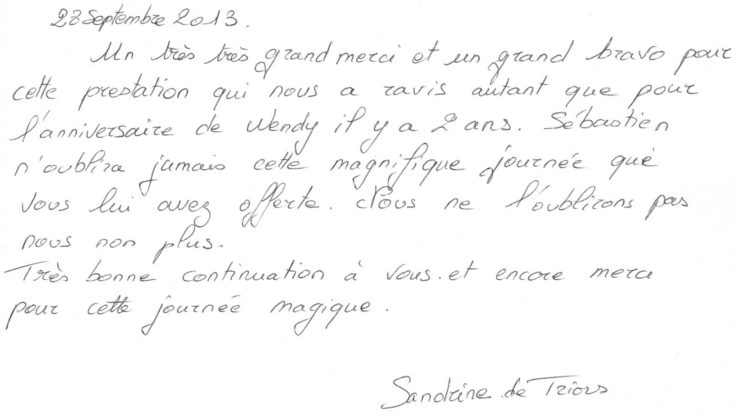 28 Septembre 2013.
Un très très grand merci et un grand bravo pour
cette prestation qui nous a ravis autant que pour
l'anniversaire de Wendy il y a 2 ans. Sébastien
n'oublira jamais cette magnifique journée que
vous lui avez offerte. Nous ne l'oublirons pas
nous non plus.
Très bonne continuation à vous. et encore merci
pour cette journée magique.
Sandrine de Triors